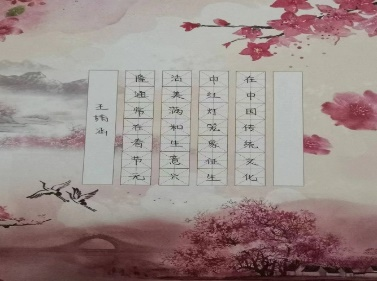 在中国传统文化
中红灯笼象征生
活美满和生意兴
隆通常在春节元
王